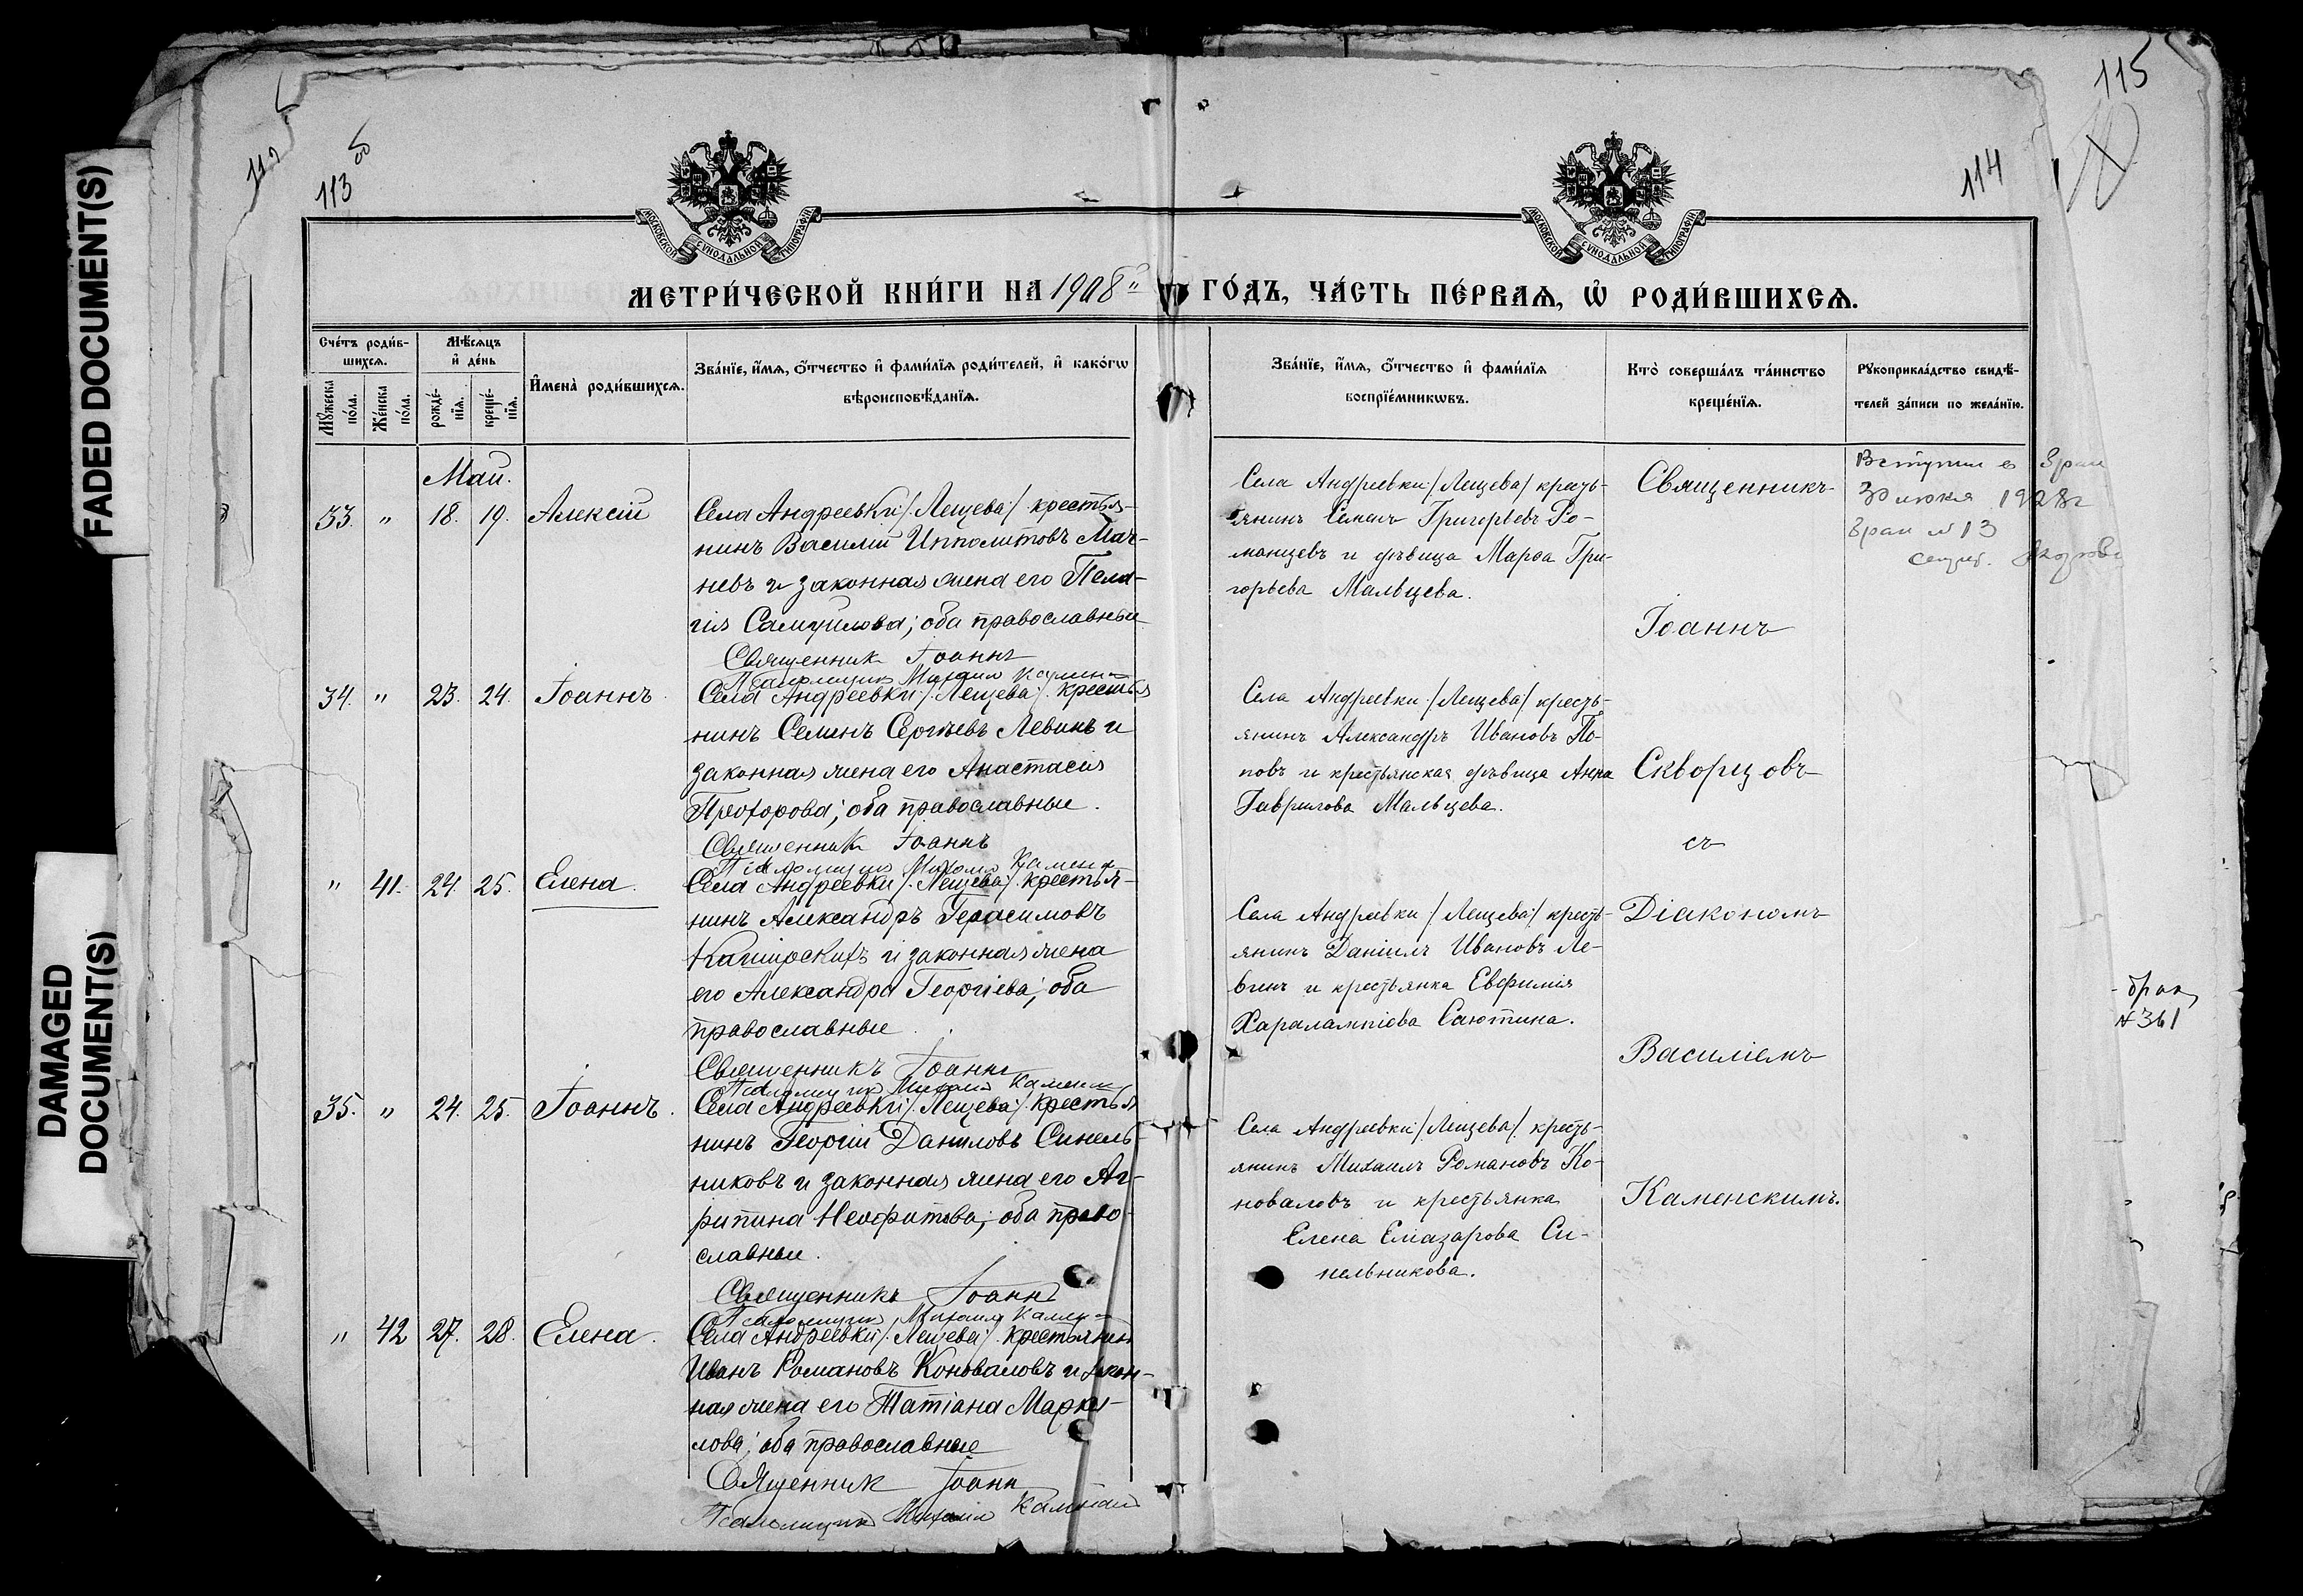 FADED DOCUMENT(S)
DAMAGED
DOCUMENT(S)
112
113
115
114
МОСКОВСКОЙ СУНОДАЛЬНОЙ ТИПОГРАФІИ
МОСКОВСКОЙ СУНОДАЛЬНОЙ ТИПОГРАФІИ
МЕТРИ́ЧЕСКОЙ КНИ́ГИ НА 1908 ГО́ДЪ, ЧА́СТЬ ПЕ́РВАѦ, Ѡ҆ РОДИ́ВШИХСѦ.
Сче́тъ роди́в-
шихсѧ.
Мꙋ́жеска
по́ла.
Же́нска
по́ла.
Мѣ́сѧцъ
и҆ де́нь
рожде́-
нїѧ.
креще́-
нїѧ.
И҆мена̀ роди́вшихсѧ.
Зва́нїе, и҆́мѧ, ѻ҆́тчество и҆ фами́лїѧ роди́телей, и҆ како́гѡ
вѣроисповѣ́данїѧ.
Зва́нїе, и҆́мѧ, ѻ҆́тчество и҆ фами́лїѧ
воспрїе́мникѡвъ.
Кто̀ соверша́лъ та́инство
креще́нїѧ.
Рꙋкоприкла́дство свидѣ́-
телей за́писи по жела́нїю.
Май.
33. " 18. 19. Алексій
Села Андреевки /:Лещева:/ крестья-
нинъ Василій Ипполитовъ Мач-
невъ и законная жена его Пела-
гія Самуилова; оба православные
Священник Іоаннъ
Псаломщикъ Михаил Камен-
Села Андреевки /:Лещева:/ кресть-
янинъ Семенъ Григорьевъ Ро-
манцевъ и дѣвица Марѳа Гри-
горьева Мальцева.
Священникъ
Іоаннъ
Скворцовъ
съ
Діакономъ
Василіемъ
Каменскимъ.
Вступил в брак
30 июня 1928г
брак № 13
34. " 23. 24. Іоаннъ.
Села Андреевки /:Лещева:/ крестья
нинъ Семенъ Сергѣевъ Левинъ и
законная жена его Анастасія
Прохорова; оба православные.
Священникъ Іоаннъ
Псаломщикъ Михаил Камен-
Села Андреевки /:Лещева:/ кресть-
янинъ Александръ Ивановъ По-
повъ и крестьянская дѣвица Анна
Гаврилова Мальцева.
" 41. 24. 25. Елена.
Села Андреевки /:Лещева:/ крестья-
нинъ Александръ Герасимовъ
Каширскихъ и законная жена
его Александра Георгіева; оба
православные.
Священникъ Іоаннъ
Псаломщикъ Михаил Камен-
Села Андреевки /:Лещева:/ кресть-
янинъ Даніилъ Ивановъ Ле-
винъ и крестьянка Евфимія
Харалампіева Саютина.
брак
№ 361
35. " 24. 25. Іоаннъ.
Села Андреевки /:Лещева:/ крестья
нинъ Георгій Даниловъ Синель-
никовъ и законная жена его Аг-
рипина Неофитова; оба право-
славные.
Священникъ Іоаннъ
Псаломщикъ Михаил Камен-
Села Андреевки /:Лещева:/ кресть-
янинъ Михаилъ Романовъ Ко-
новаловъ и крестьянка
Елена Елиазарова Си-
нельникова.
" 42 27. 28. Елена.
Села Андреевки /:Лещева:/ крестьянин
Иванъ Романовъ Коноваловъ и закон-
ная жена его Татіана Марки-
лова; оба православные
Священник Іоанн
Псаломщикъ Михаил